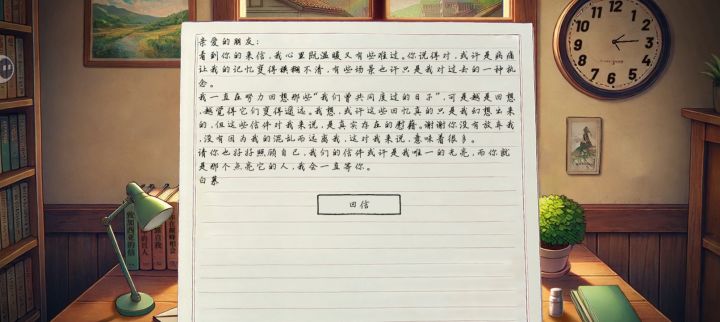 亲爱的朋友：
看到你的来信，我心里既温暖又有些难过。你说得对，或许是病痛
让我的记忆变得模糊不清，有些场景也许只是我对过去的一种执
念。
我一直在努力回想那些“我们曾共同度过的日子”，可是越是回想
，越觉得它们变得遥远。我想，或许这些回忆真的只是我幻想出来
的，但这些信件对我来说，是真实存在的慰藉。谢谢你没有放弃我
，没有因为我的混乱而远离我，这对我来说，意味着很多。
请你也好好照顾自己，我们的信件或许是我唯一的光亮，而你就
是那个点亮它的人，我会一直等你。
白慕
回信